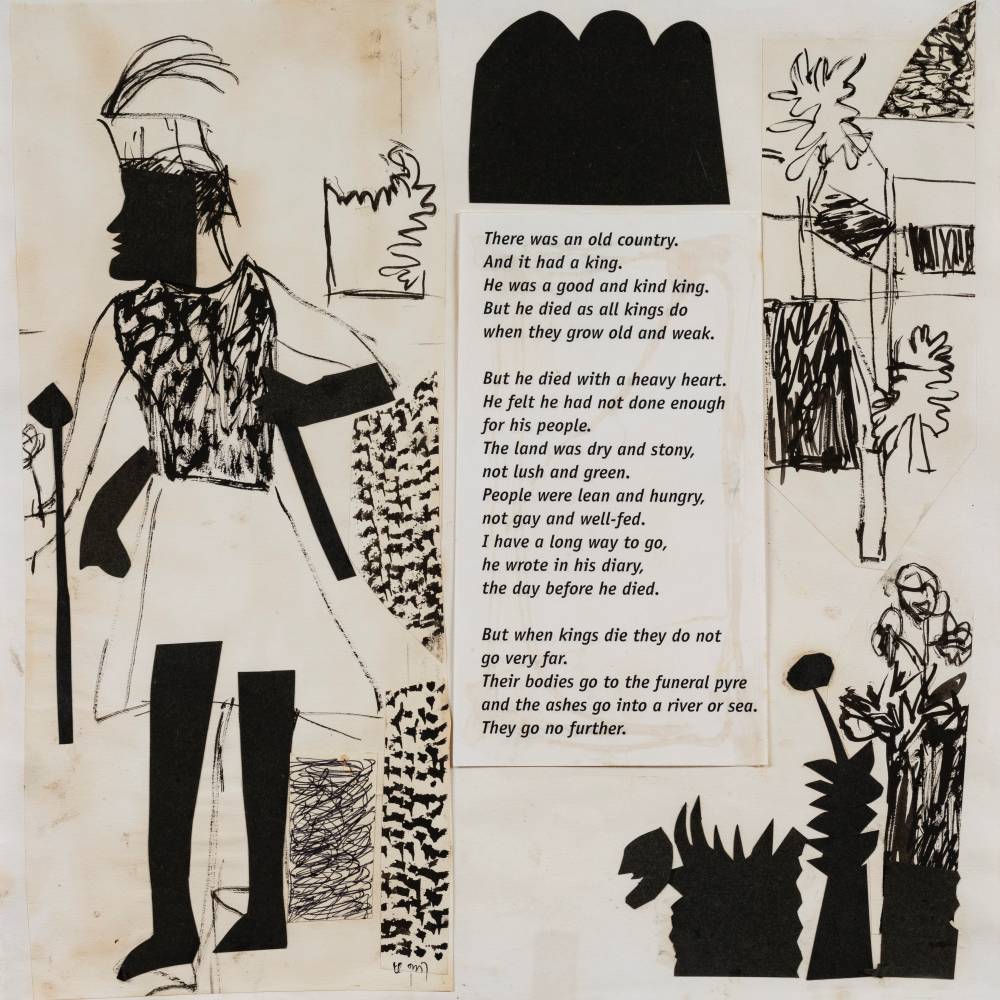 There was an old country.
And it had a king.
He was a good and kind king.
But he died as all kings do
when they grow old and weak.
But he died with a heavy heart.
He felt he had not done enough
for his people.
The land was dry and stony,
not lush and green.
People were lean and hungry,
not gay and well-fed.
I have a long way to go,
he wrote in his diary,
the day before he died.
But when kings die they do not
go very far.
Their bodies go to the funeral pyre
and the ashes go into a river or sea.
They go no further.